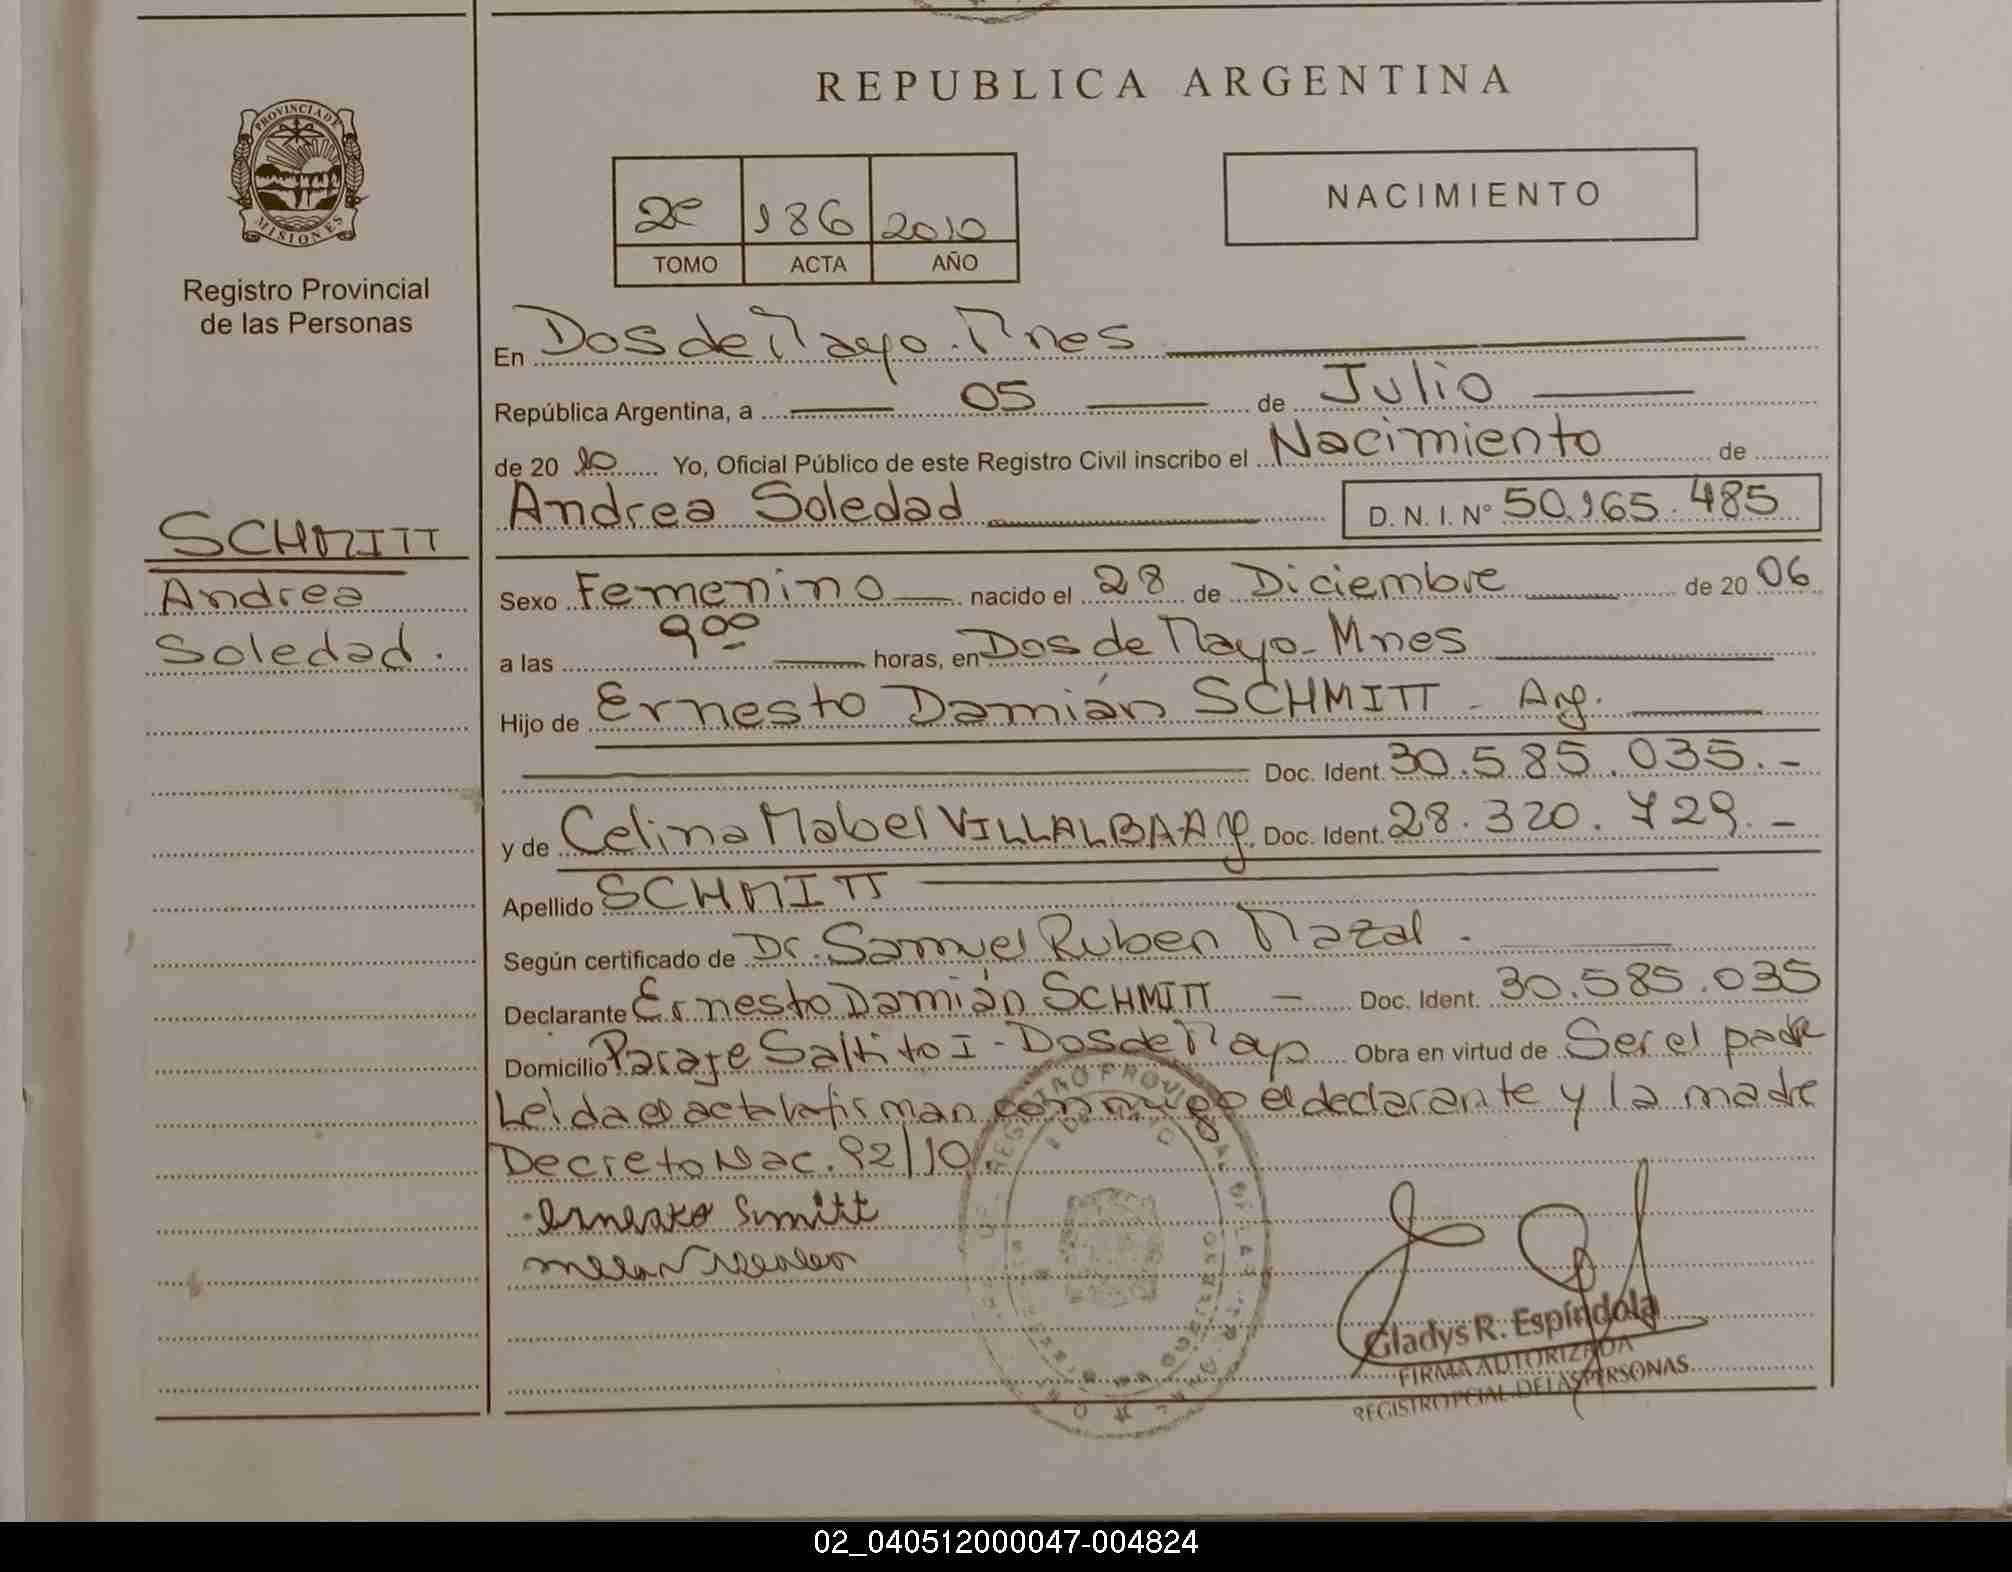 REPUBLICA ARGENTINA
PROVINCIA DE
MISIONES
Registro Provincial
de las Personas
2º 186 2010
TOMO ACTA AÑO
NACIMIENTO
En Dos de Mayo. Mnes
República Argentina, a 05 de Julio
de 20 10 Yo, Oficial Público de este Registro Civil inscribo el Nacimiento de
Andrea Soledad D. N. I. Nº 50.165.485
SCHMITT
Andrea
Soledad.
Sexo Femenino nacido el 28 de Diciembre de 20 06
a las 9 00 horas, en Dos de Mayo - Mnes
Hijo de Ernesto Damián SCHMITT - Arg.
Doc. Ident. 30.585.035.-
y de Celina Mabel VILLALBA - Arg. Doc. Ident. 28.320.729.-
Apellido SCHMITT
Según certificado de Dr. Samuel Ruben Mazal.
Declarante Ernesto Damián SCHMITT - Doc. Ident. 30.585.035
Domicilio Paraje Saltito I - Dos de Mayo Obra en virtud de Ser el padre
Leida el acta la firman conmigo el declarante y la madre
Decreto Nac. 92/10.
Gladys R. Espíndola
FIRMA AUTORIZADA
REGISTRO PCIAL. DE LAS PERSONAS
02_040512000047-004824